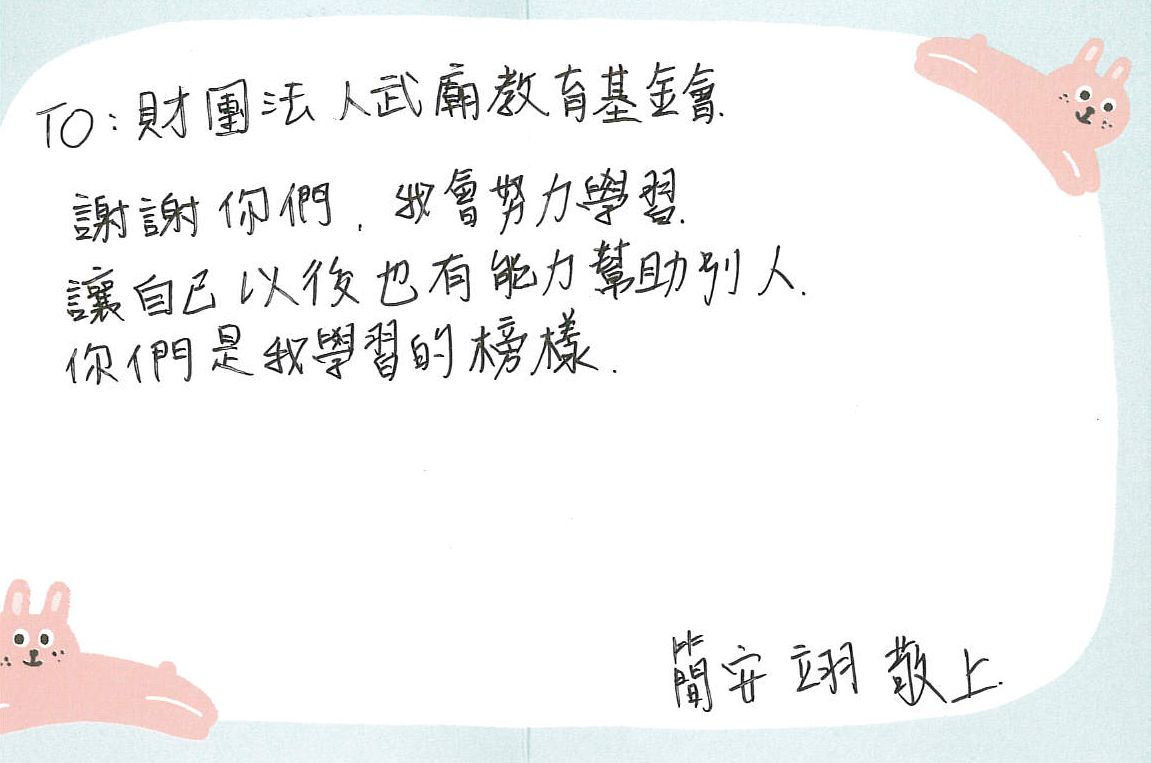 TO:財團法人武廟教育基金會.
謝謝你們,我會努力學習.
讓自己以後也有能力幫助別人.
你們是我學習的榜樣.
簡安翊敬上.